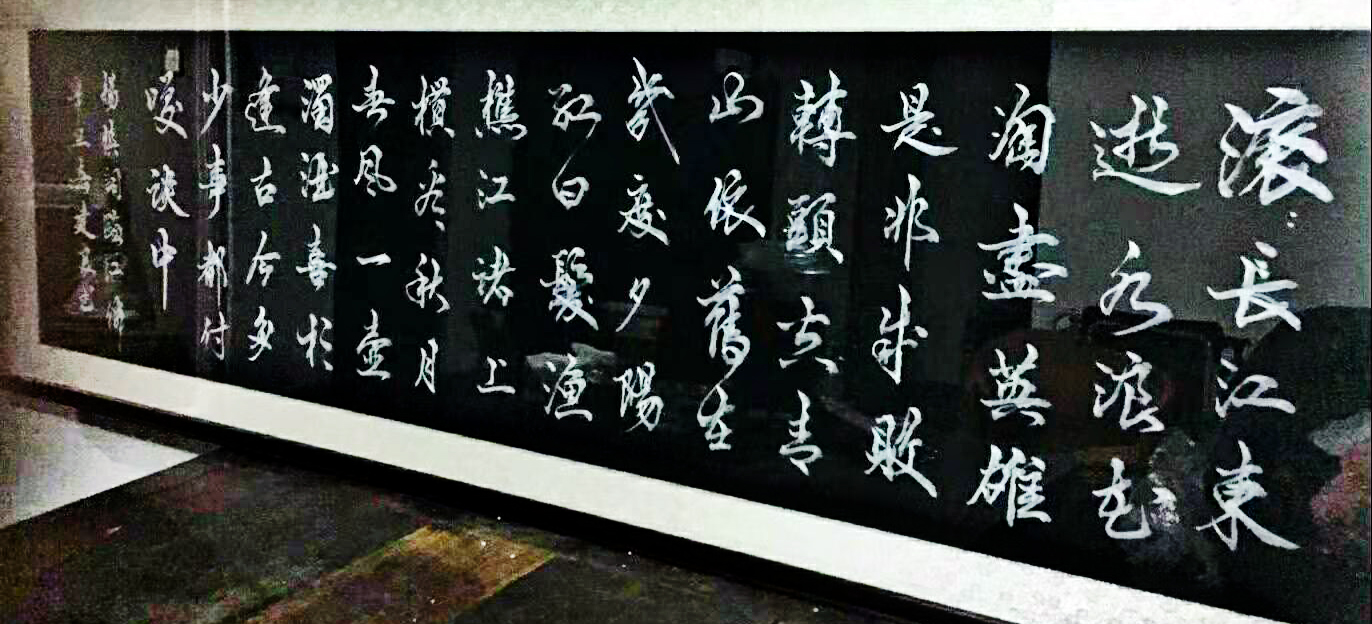 滚〻長江東
逝水浪花
淘盡英雄
是非成敗
轉頭空青
山依舊在
幾度夕陽
紅白髮漁
樵江渚上
慣看秋月
春風一壺
濁酒喜相
逢古今多
少事都付
咲談中
楊慎詞臨江仙
辛丑